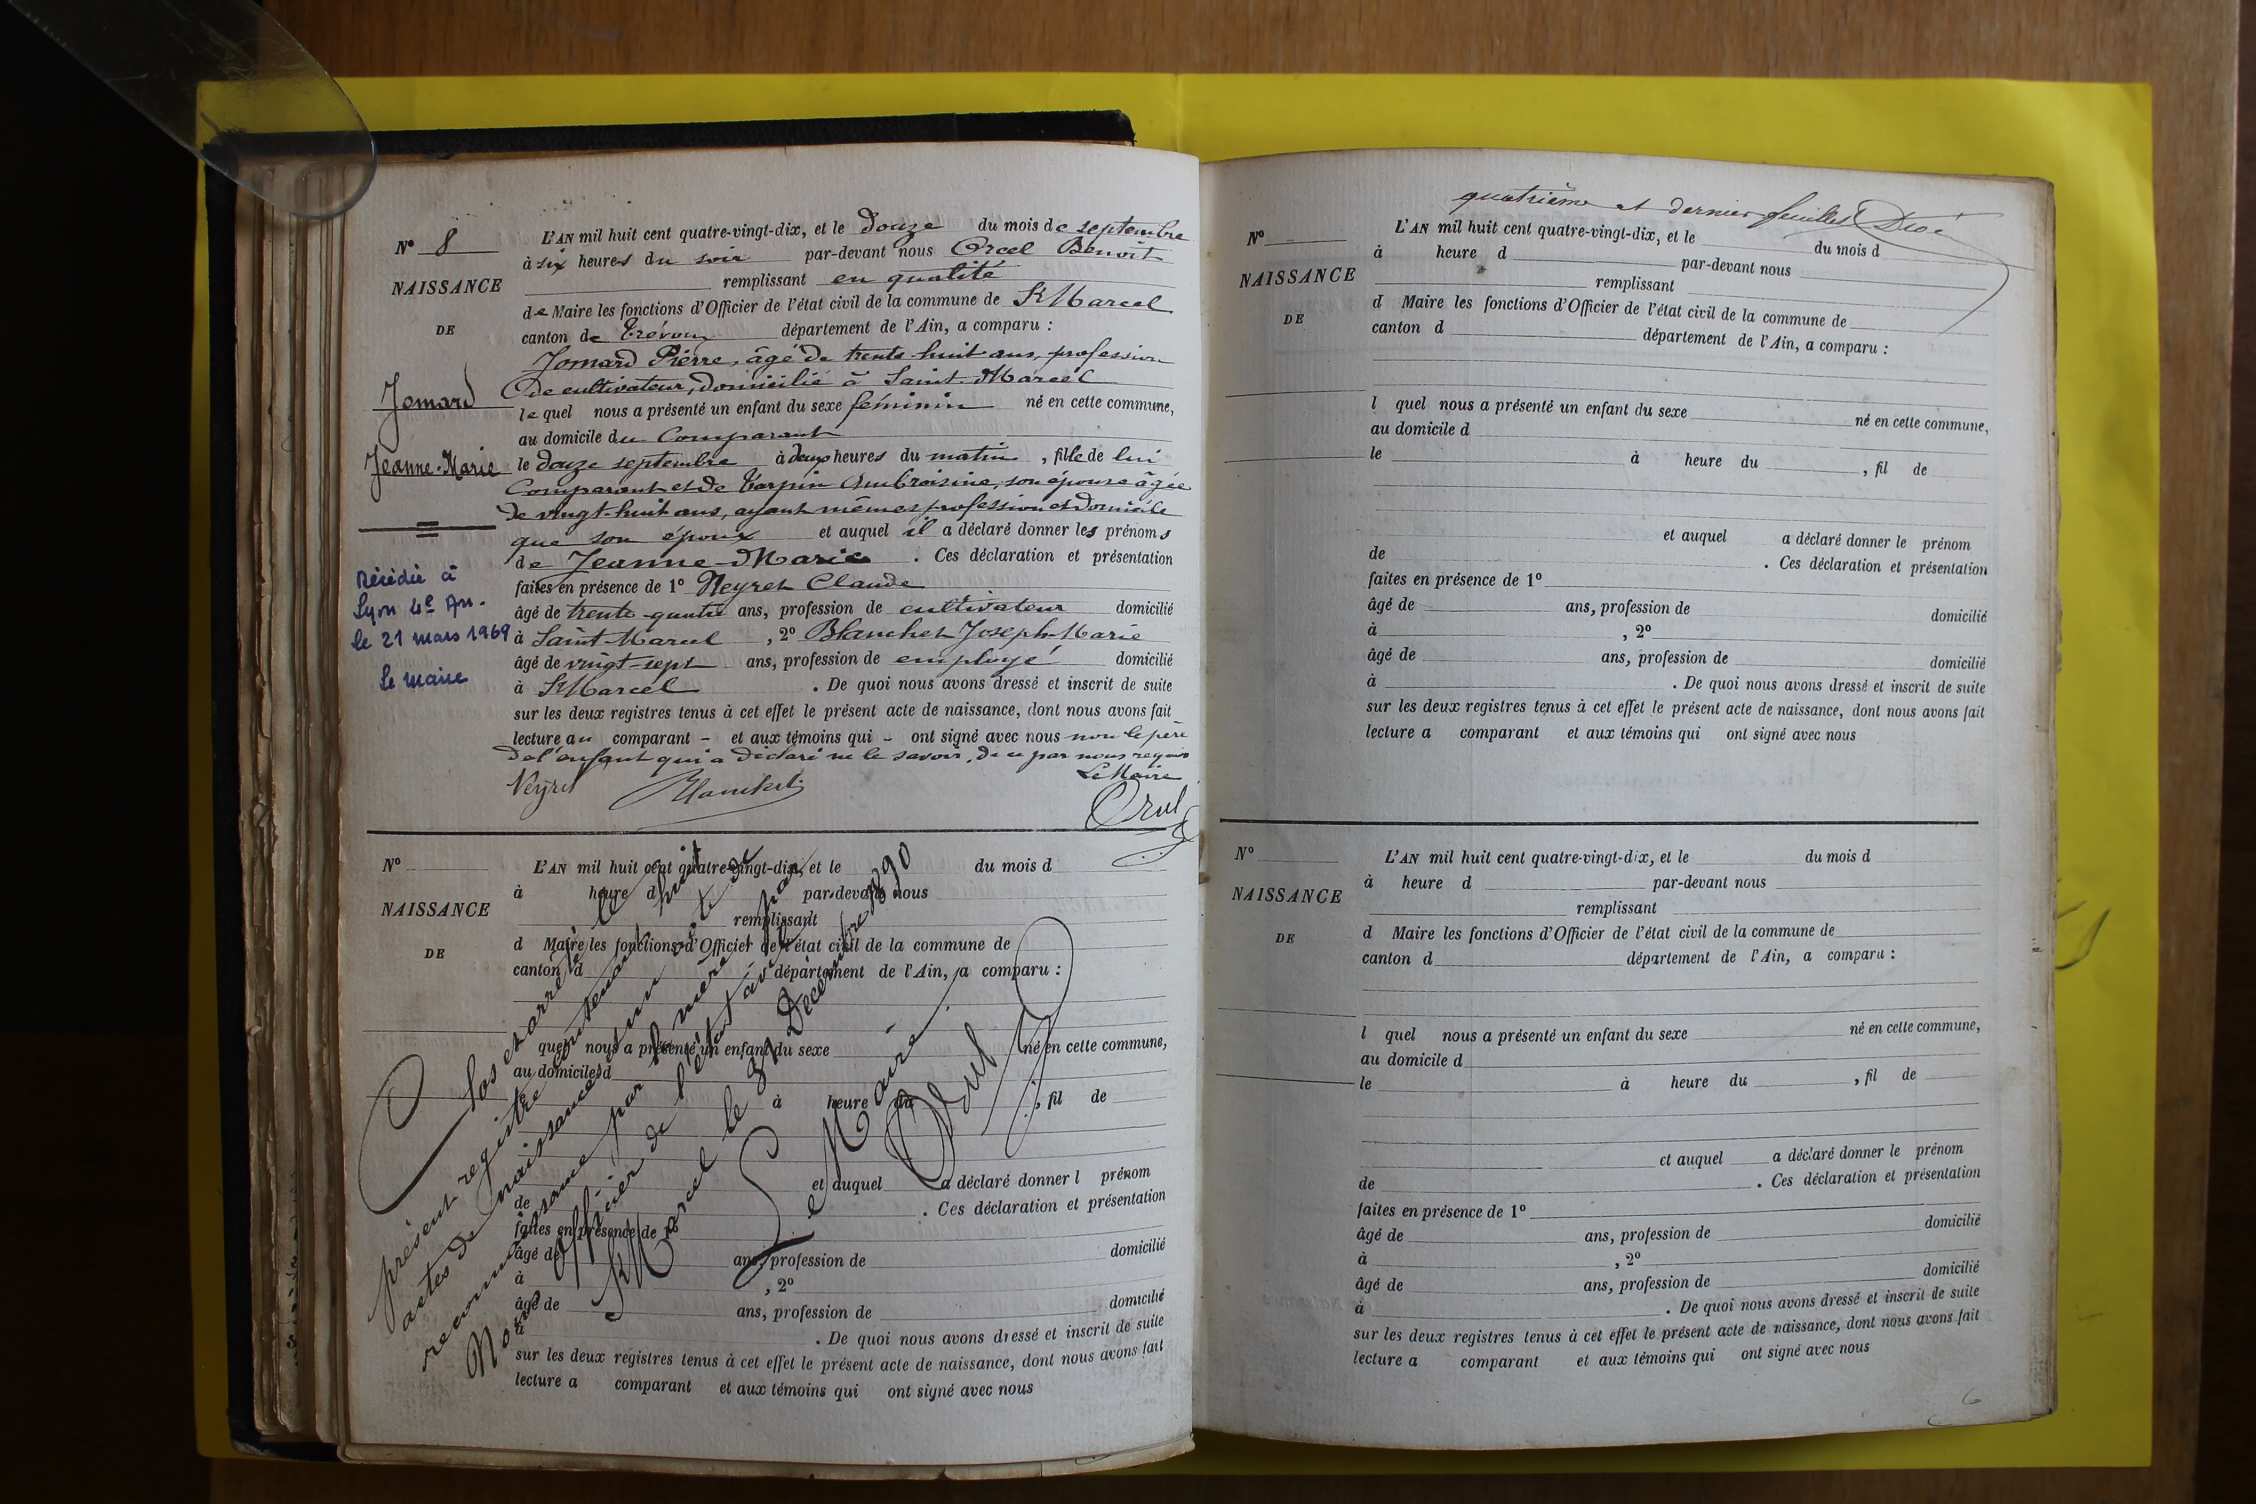 N° 8
NAISSANCE
DE
Jomard
Jeanne-Marie
Décédée à
Lyon 4e Arr.
le 21 mars 1969
Le maire
L'AN mil huit cent quatre-vingt-dix, et le douze du mois de septembre
à six heures du soir par-devant nous Orcel Benoit
remplissant en qualité
de Maire les fonctions d'Officier de l'état civil de la commune de St Marcel
canton de Trévoux département de l'Ain, a comparu :
Jomard Pierre, âgé de trente-huit ans, profession
de cultivateur, domicilié à Saint-Marcel
lequel nous a présenté un enfant du sexe féminin né en cette commune,
au domicile du Comparant
le douze septembre à deux heures du matin, fille de lui
Comparant et de Tarpin Ambroisine, son épouse âgée
de vingt-huit ans, ayant mêmes profession et domicile
que son époux et auquel il a déclaré donner les prénoms
de Jeanne-Marie. Ces déclaration et présentation
faites en présence de 1° Neyret Claude
âgé de trente-quatre ans, profession de cultivateur domicilié
à Saint Marcel, 2° Blanchet Joseph-Marie
âgé de vingt-sept ans, profession de employé domicilié
à St Marcel. De quoi nous avons dressé et inscrit de suite
sur les deux registres tenus à cet effet le présent acte de naissance, dont nous avons fait
lecture au comparant - et aux témoins qui - ont signé avec nous non le père
de l'enfant qui a déclaré ne le savoir, de ce par nous requis
Le Maire
Neyret Blanchet
Orcel
N°
NAISSANCE
DE
L'AN mil huit cent quatre-vingt-dix, et le du mois d
à heure d par-devant nous
remplissant
d Maire les fonctions d'Officier de l'état civil de la commune de
canton d département de l'Ain, a comparu :
quel nous a présenté un enfant du sexe né en cette commune,
au domicile d
à heure du , fil de
et auquel a déclaré donner l prénom
de . Ces déclaration et présentation
faites en présence de 1°
âgé de ans, profession de domicilié
à , 2°
âgé de ans, profession de domicilié
à . De quoi nous avons dressé et inscrit de suite
sur les deux registres tenus à cet effet le présent acte de naissance, dont nous avons fait
lecture a comparant et aux témoins qui ont signé avec nous
Clos et arrêté le
présent registre contenant huit
actes de naissance et un acte de
reconnaissance par la mère par
Nous Officier de l'état civil
St Marcel le 31 Décembre 1890
Le Maire
Orcel
quatrième et dernier feuillet
N°
NAISSANCE
DE
L'AN mil huit cent quatre-vingt-dix, et le du mois d
à heure d par-devant nous
remplissant
d Maire les fonctions d'Officier de l'état civil de la commune de
canton d département de l'Ain, a comparu :
l quel nous a présenté un enfant du sexe né en cette commune,
au domicile d
le à heure du , fil de
et auquel a déclaré donner le prénom
de . Ces déclaration et présentation
faites en présence de 1°
âgé de ans, profession de domicilié
à , 2°
âgé de ans, profession de domicilié
à . De quoi nous avons dressé et inscrit de suite
sur les deux registres tenus à cet effet le présent acte de naissance, dont nous avons fait
lecture a comparant et aux témoins qui ont signé avec nous
N°
NAISSANCE
DE
L'AN mil huit cent quatre-vingt-dix, et le du mois d
à heure d par-devant nous
remplissant
d Maire les fonctions d'Officier de l'état civil de la commune de
canton d département de l'Ain, a comparu :
l quel nous a présenté un enfant du sexe né en cette commune,
au domicile d
le à heure du , fil de
et auquel a déclaré donner le prénom
de . Ces déclaration et présentation
faites en présence de 1°
âgé de ans, profession de domicilié
à , 2°
âgé de ans, profession de domicilié
à . De quoi nous avons dressé et inscrit de suite
sur les deux registres tenus à cet effet le présent acte de naissance, dont nous avons fait
lecture a comparant et aux témoins qui ont signé avec nous
6